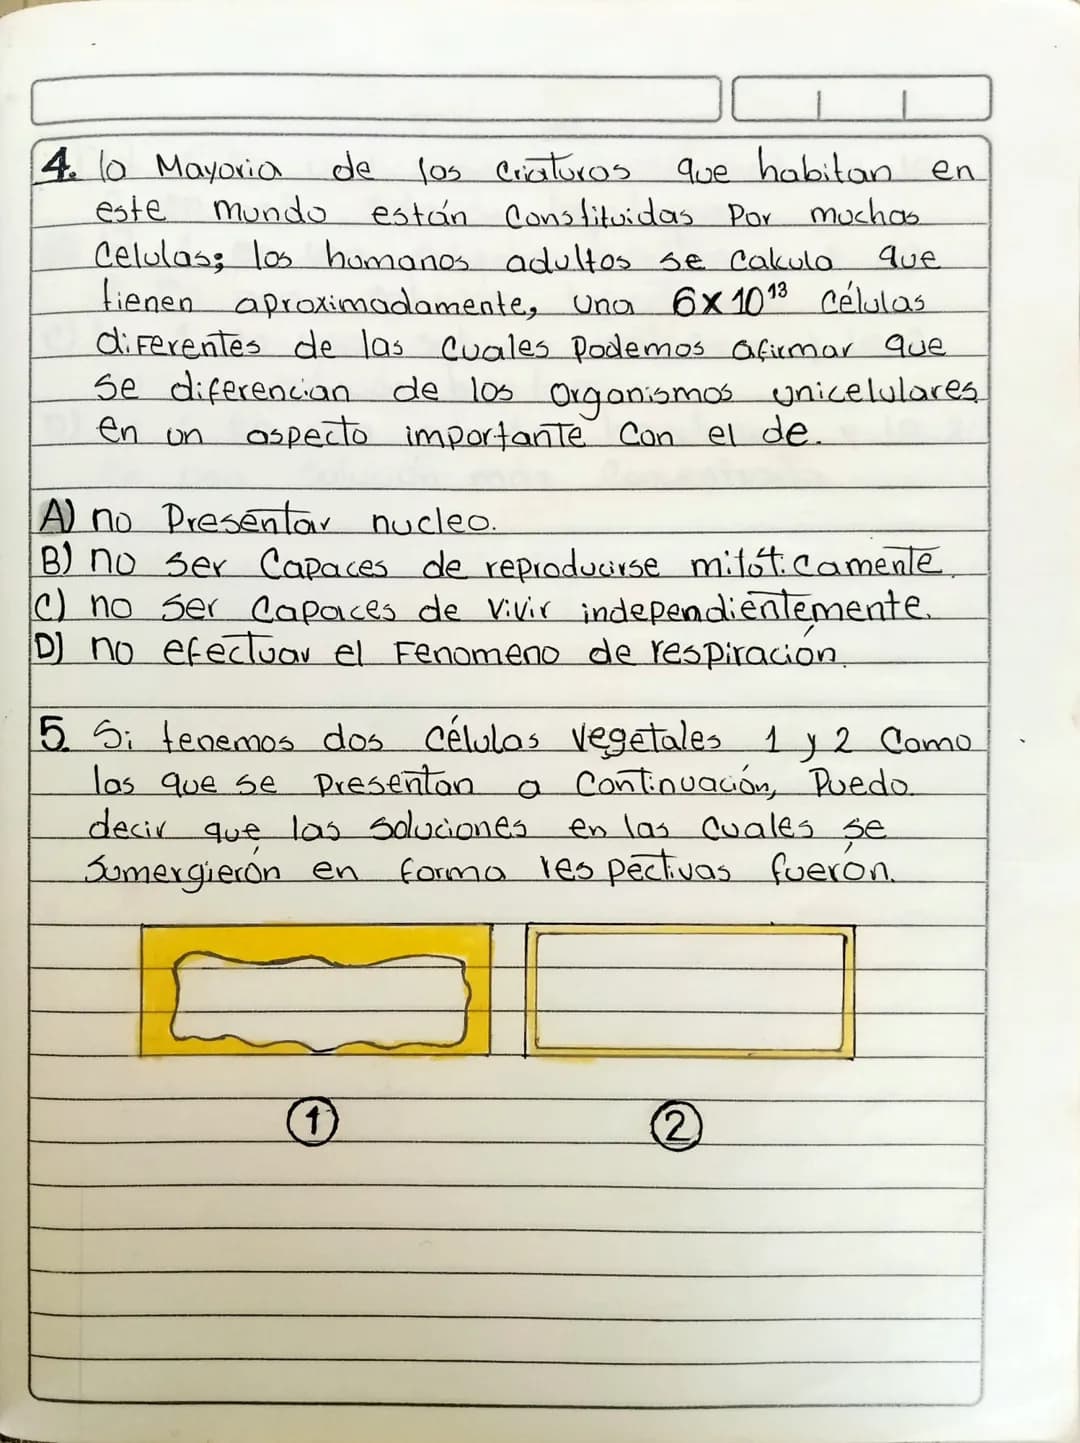 4. la Mayoria de las Criaturas que habitan en
este mundo están Constituidas Por muchas
Celulas; los humanos adultos se Calcula que
tienen aproximadamente, una 6x10¹³ Células
diferentes de las Cuales Podemos afirmar que
se diferencian de los Organismos unicelulares
en un aspecto importante Con el de.
A) no Presentar nucleo.
B) no ser Capaces de reproducirse mitóticamente.
C) no ser Capaces de vivir independientemente.
D) no efectuar el Fenomeno de respiración.
5. Si tenemos dos Células vegetales 1 y 2 Como
las que se Presentan a Continuación, Puedo
decir que las soluciones en las Cuales se
Sumergierón en forma respectivas fuerón.
1
2